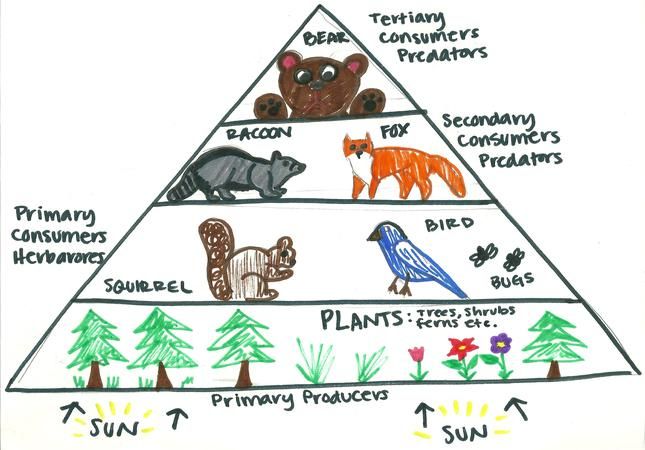 BEAR
Tertiary
Consumers
Predators
RACOON
FOX
Secondary
Consumers
Predators
Primary
Consumers
Herbavores
SQUIRREL
BIRD
BUGS
PLANTS: Trees, Shrubs
ferns etc.
Primary Producers
SUN
SUN